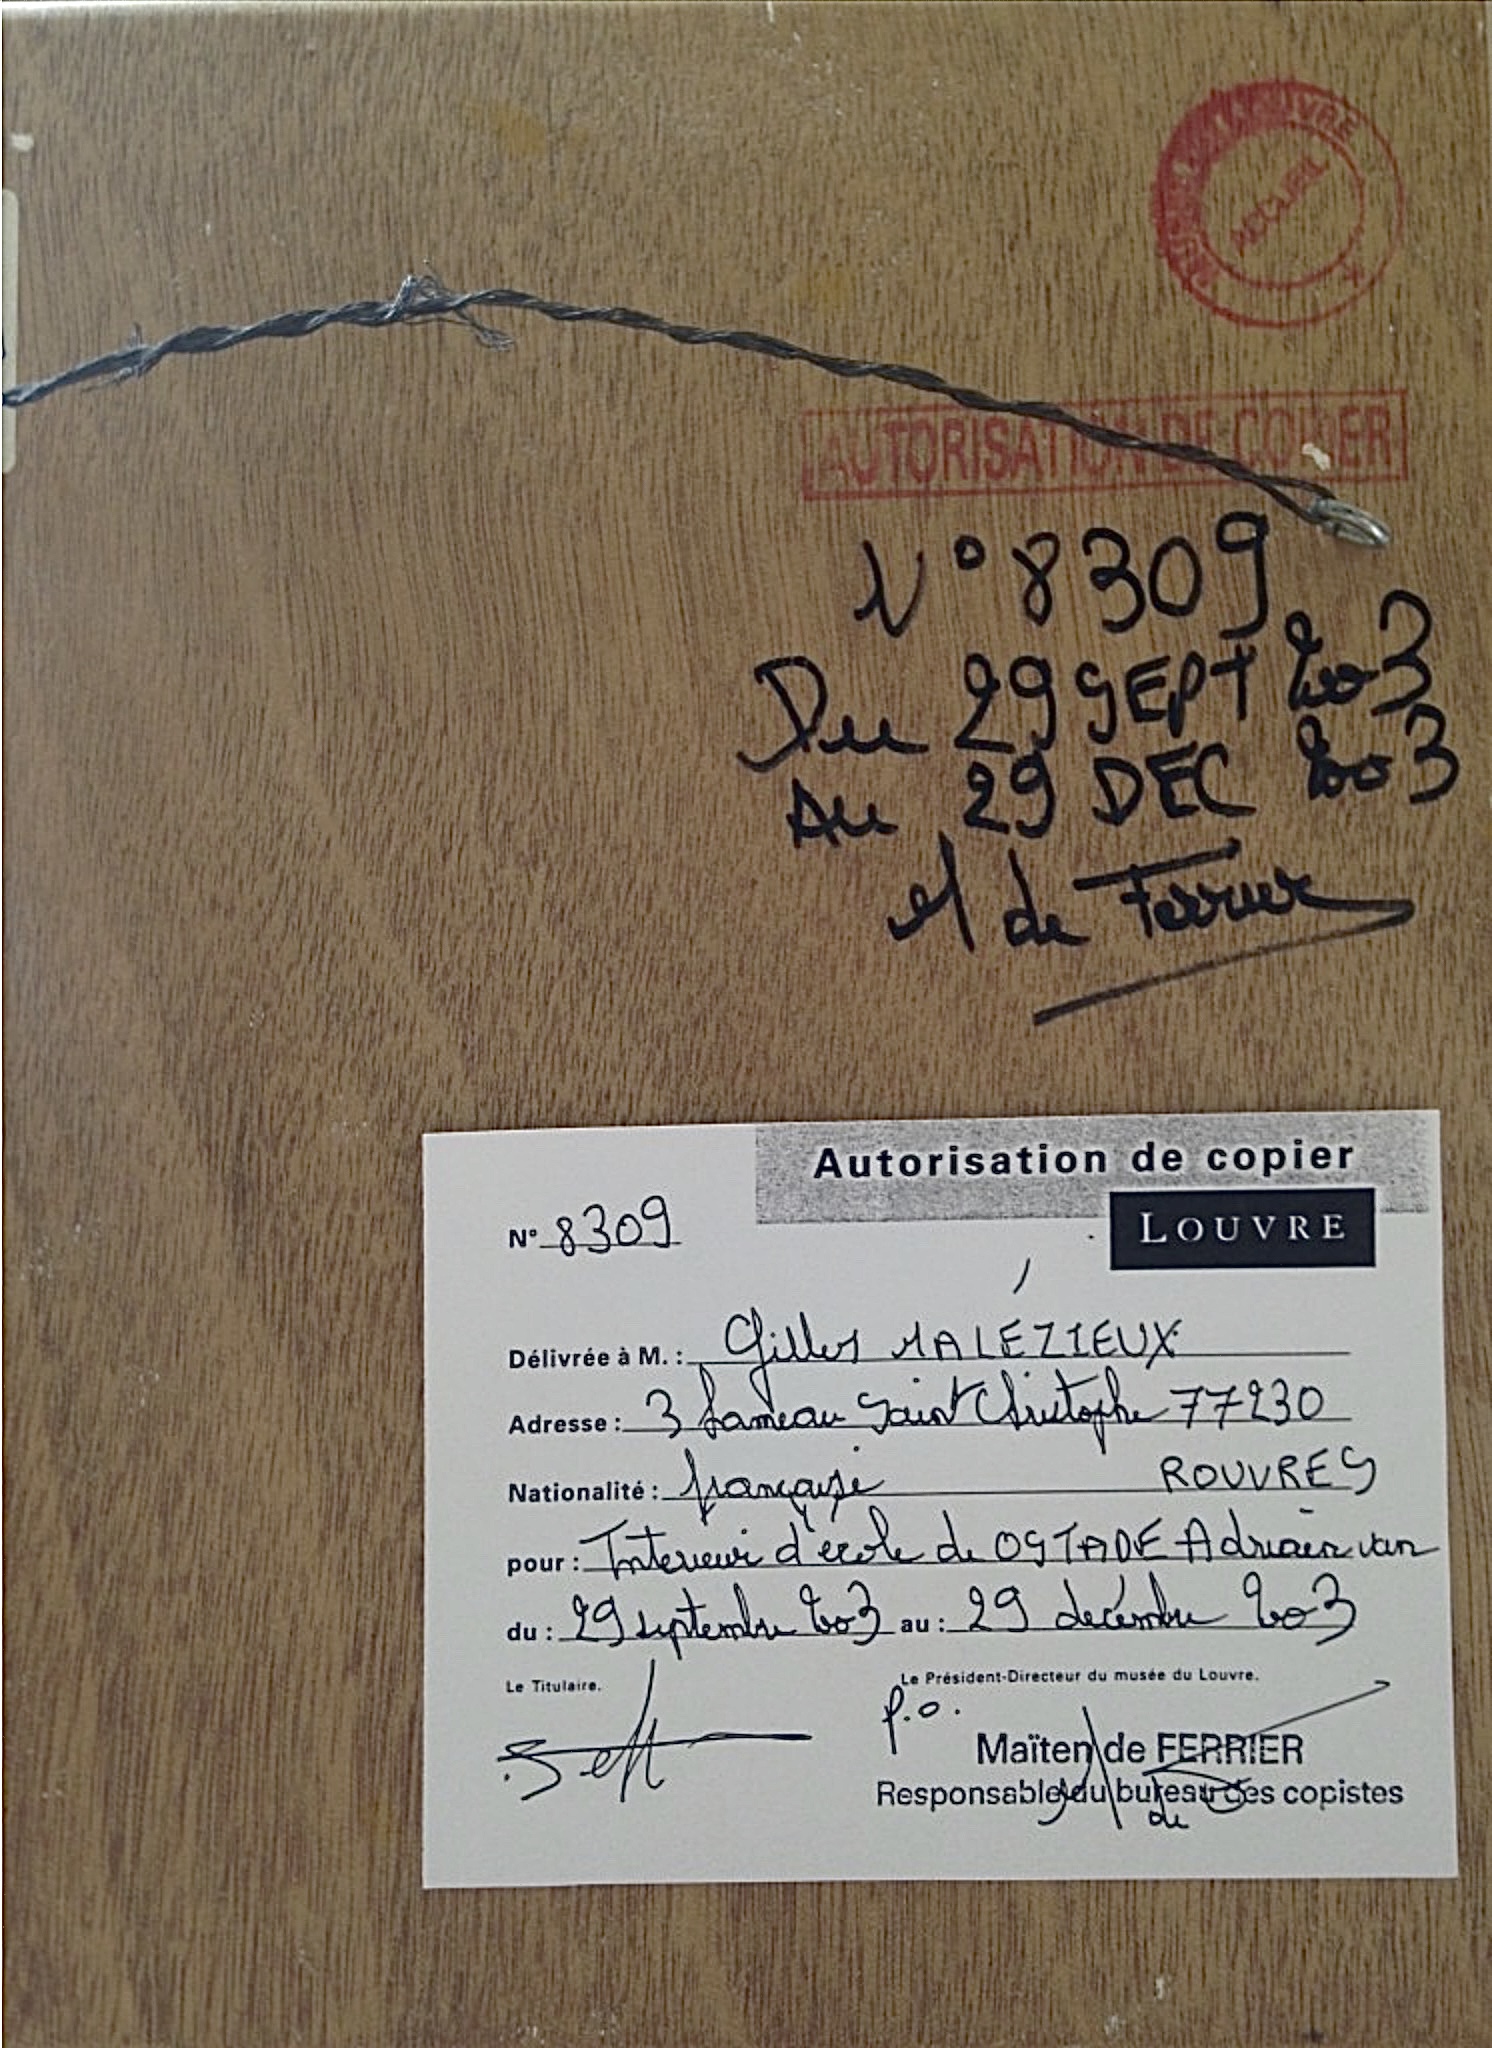 MUSEE DU LOUVRE
ACCUEIL
AUTORISATION DE COPIER
N° 8309
Du 29 SEPT 2003
Au 29 DEC 2003
M de Ferrier
Autorisation de copier
LOUVRE
N° 8309
Délivrée à M. : Gilles MALÉZIEUX
Adresse : 3 hameau Saint Christophe 77230
Nationalité : française ROUVRES
pour : Interieur d'école de OSTADE Adriaen van
du : 29 septembre 2003 au : 29 décembre 2003
Le Titulaire. Le Président-Directeur du musée du Louvre.
p.o.
Maïten de FERRIER
Responsable du bureau des copistes